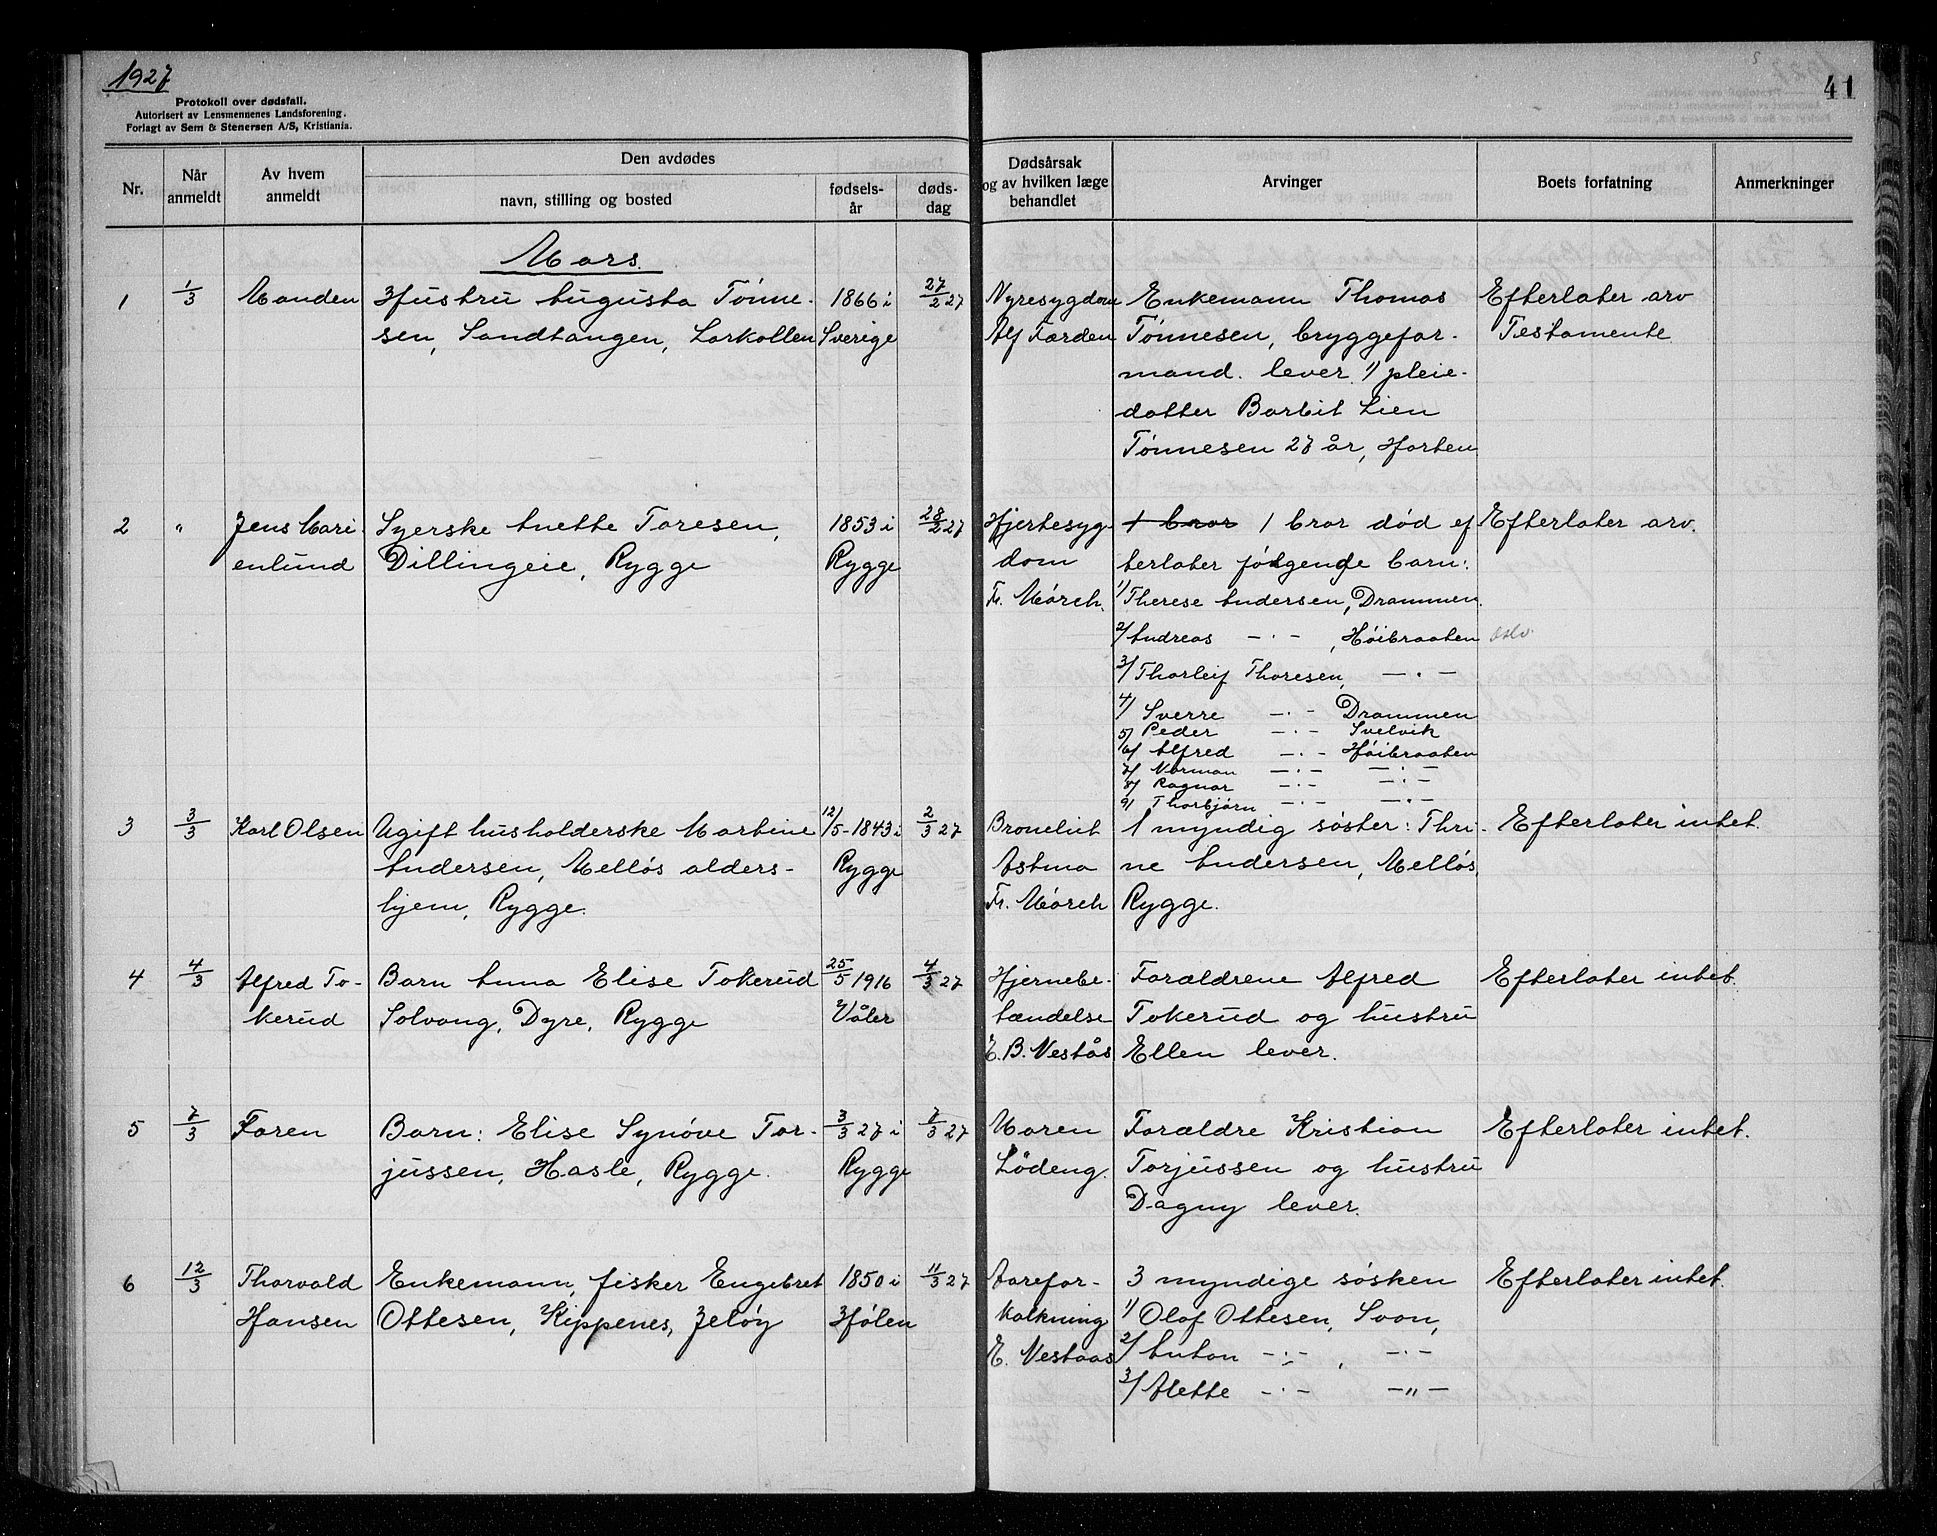 1927
Protokoll over dødsfall.
Autorisert av Lensmennenes Landsforening.
Forlagt av Sem & Stenersen A/S, Kristiania.
41
Nr.
Når anmeldt
Av hvem anmeldt
Den avdødes
navn, stilling og bosted
fødsels-år
døds-dag
Dødsårsak og av hvilken læge behandlet
Arvinger
Boets forfatning
Anmerkninger
Mars.
1
1/3
Manden
Hustru Augusta Tönne-
sen, Sandtangen, Larkollen
1866 i
Sverige
27/2 27
Nyresygdom
Alf Færden
Enkemann Thomas
Tönnesen, bryggefor-
mand. lever. 1) pleie-
datter Borbit Lien
Tönnesen 27 år, Horten
Efterlater arv
Testamente
2
"
Jens Mari-
enlund
Syerske Anette Toresen,
Dillingeie, Rygge
1853 i
Rygge
28/2 27
Hjertesyg
dom
Fr. Mörch.
1 bror 1 bror död ef
terlater fölgende barn:
1/ Therese Andersen, Drammen.
2/ Andreas —·— , Höibraaten
3/ Thorleif Thoresen, —·—
4/ Sverre —·— Drammen
5/ Peder —·— Svelvik
6/ Alfred —·— Höibraaten
7/ Norman —·— —·—
8/ Ragnar —·— —·—
9/ Thorbjörn —·— —·—
Efterlater arv.
3
3/3
Karl Olsen
Ugift husholderske Martine
Andersen, Mellös alders-
hjem, Rygge.
12/5-1843 i
Rygge
2/3 27
Bronchit
Astma
Fr. Mörch
1 myndig söster: Thri-
ne Andersen, Mellös,
Rygge.
Efterlater intet.
4
4/3
Alfred To-
kerud
Barn Anna Elise Tokerud
Solvang, Dyre, Rygge
25/5 1916
Våler
4/3 27
Hjernebe-
tændelse
E. B. Vestås
Forældrene Alfred
Tokerud og hustru
Ellen lever.
Efterlater intet.
5
7/3
Faren
Barn: Elise Synöve Tor-
jussen, Hasle, Rygge.
3/3 27 i
Rygge
7/3 27
Maren
Lödeng.
Forældre Kristian
Torjussen og hustru
Dagny lever.
Efterlater intet.
6
12/3
Thorvald
Hansen
Enkemann, fisker Engebret
Ottesen, Kippenes, Jelöy
1850 i
Hölen
11/3 27
Aarefor-
kalkning
E. Vestaas
3 myndige sösken
1/ Olaf Ottesen, Son,
2/ Anton —·— , —·—
3/ Alette —·— —"—
Efterlater intet.